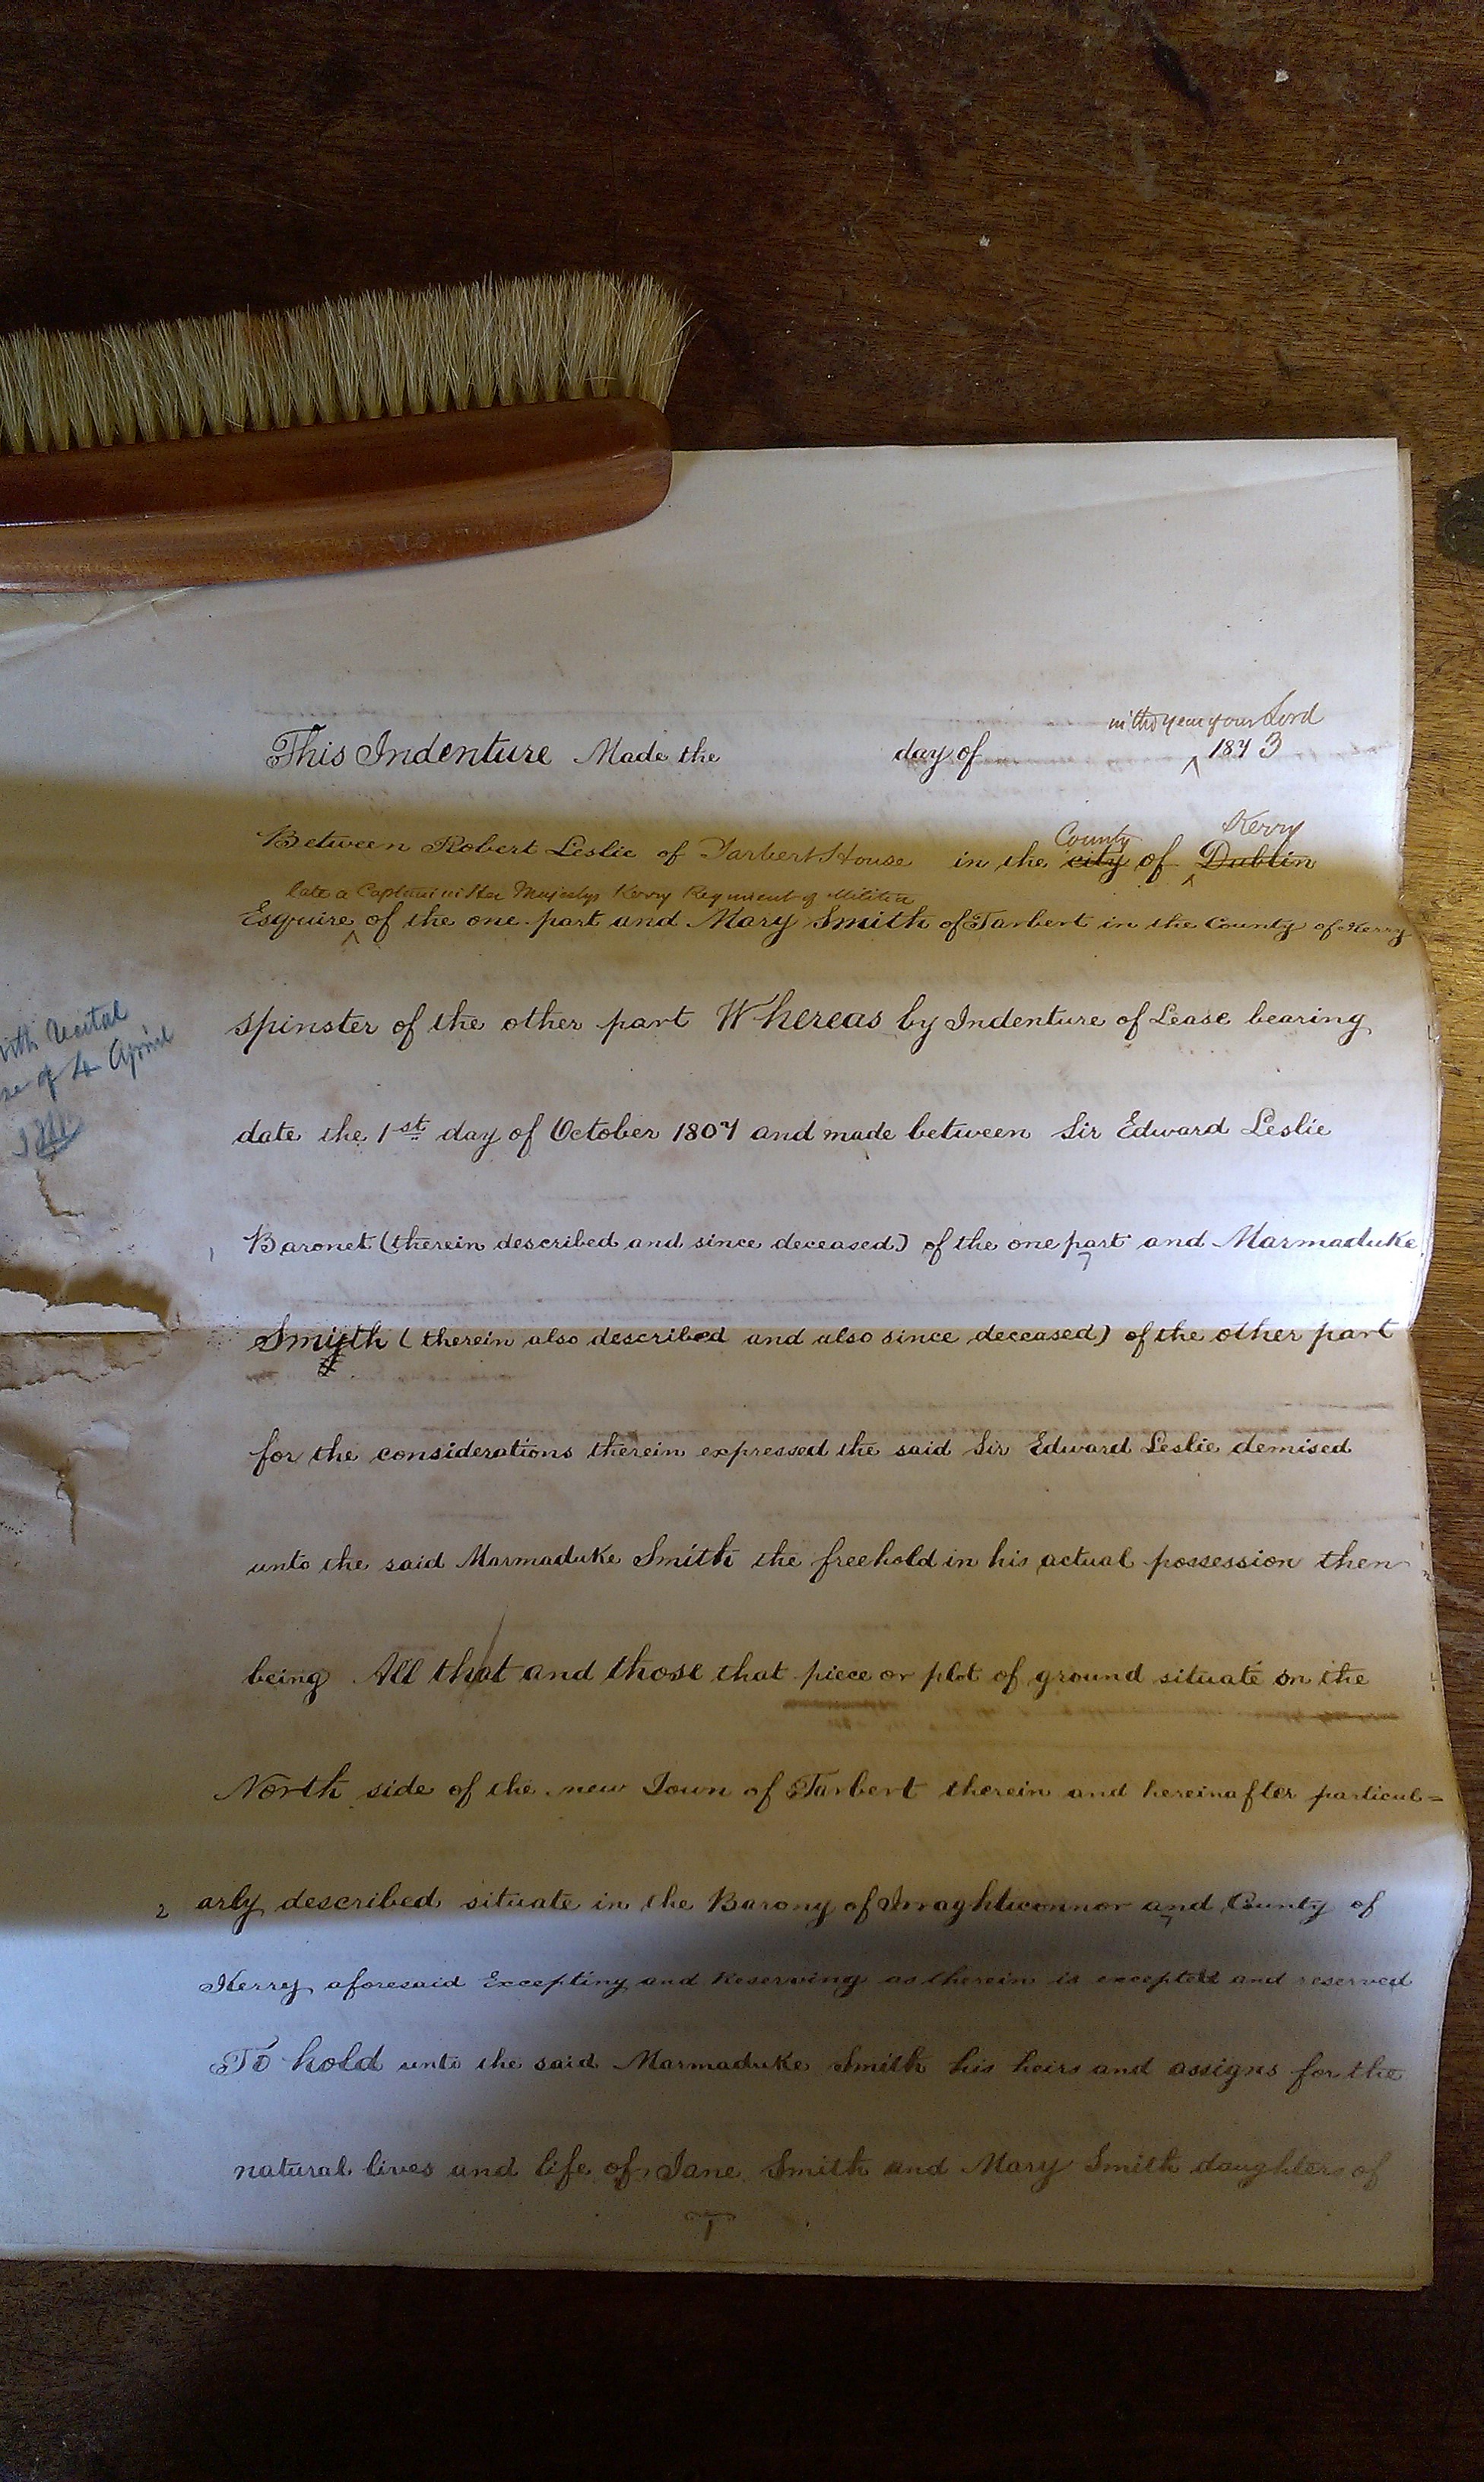 in the year of our Lord
This Indenture Made the day of 1873
County Kerry
Between Robert Leslie of Tarbert House in the city of Dublin
late a Captain in Her Majestys Kerry Regiment of Militia
Esquire of the one part and Mary Smith of Tarbert in the County of Kerry
spinster of the other part Whereas by Indenture of Lease bearing
with recital
of 4 April
date the 1st day of October 1807 and made between Sir Edward Leslie
Baronet (therein described and since deceased) of the one part and Marmaduke
Smith (therein also described and also since deceased) of the other part
for the considerations therein expressed the said Sir Edward Leslie demised
unto the said Marmaduke Smith the freehold in his actual possession then
being All that and those that piece or plot of ground situate on the
North side of the new Town of Tarbert therein and hereinafter particul=
2 arly described situate in the Barony of Iraghticonnor and County of
Kerry aforesaid Excepting and Reserving as therein is excepted and reserved
To hold unto the said Marmaduke Smith his heirs and assigns for the
natural lives and life of Jane Smith and Mary Smith daughters of